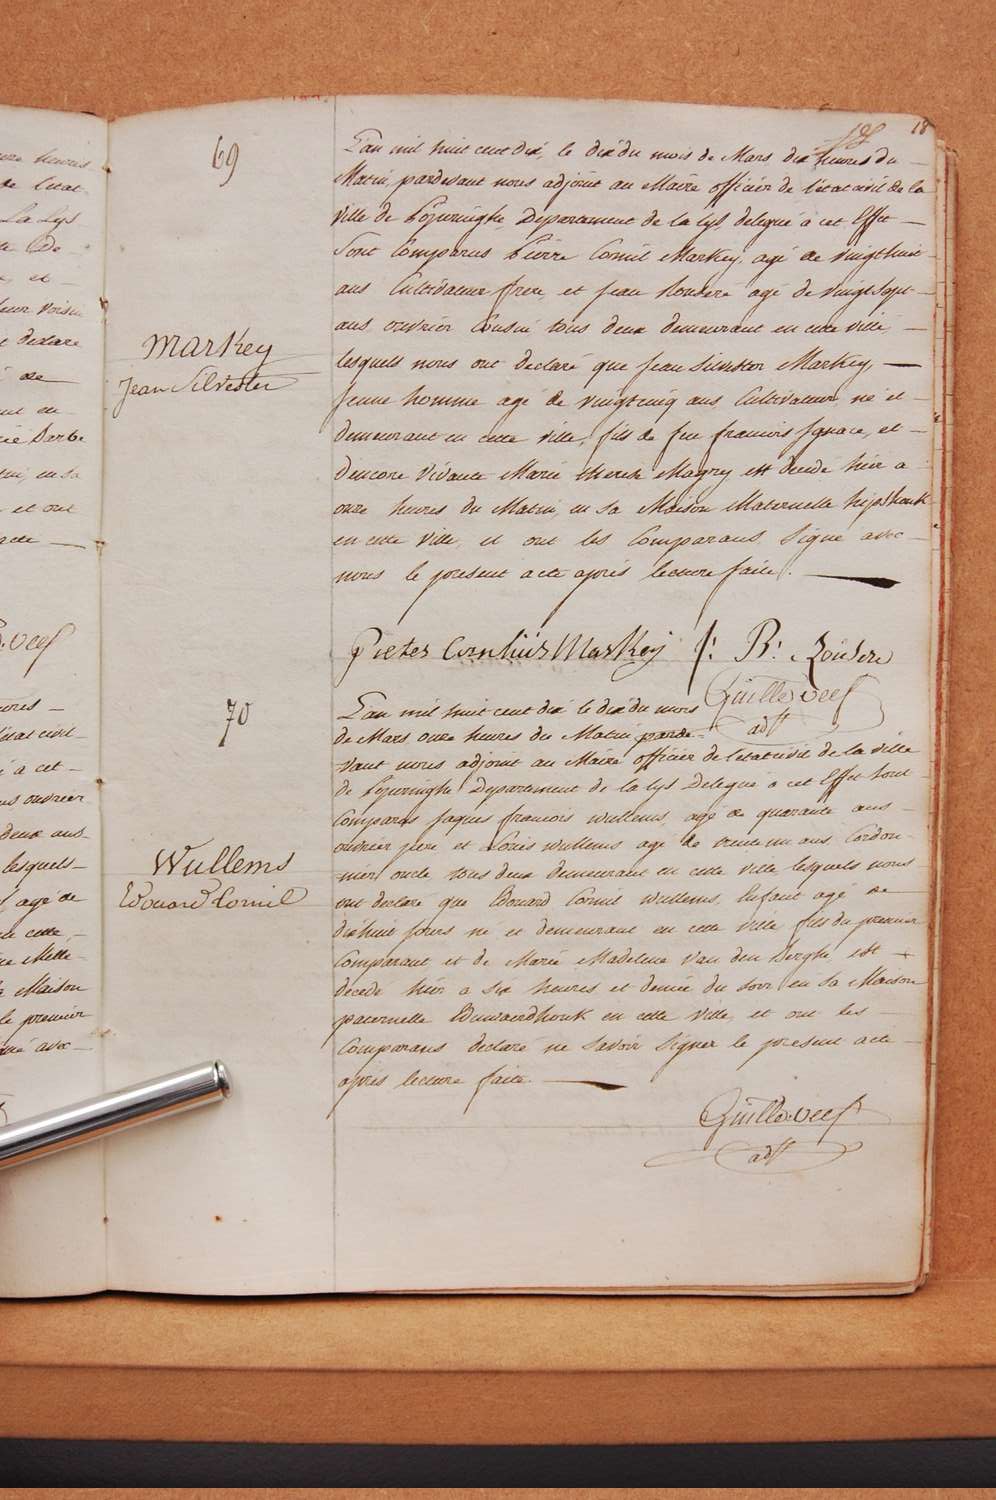 18
69
L'an mil huit cent dix, le dix du mois de Mars dix heures du
Matin, pardevant nous adjoint au Maire officier de l'état civil de la
ville de Poperinghe, Departement de la Lys, delegué à cet Effet
Sont Comparus Pierre Cornil Markey, agé de vingt huit
ans Cultivateur frere, et Jean Rouseré agé de vingt Sept
ans, ouvrier Cousin tous deux demeurant en cette ville,
lesquels nous ont declaré que Jean Silvester Markey,
Markey
Jean Silvester
Jeune homme agé de vingt cinq ans, Cultivateur, né et
demeurant en cette ville, fils de feu francois Ignace, et
d'encore Vivante Marie therese Magry est decedé hier a
onze heures du Matin, en sa Maison Maternelle hipshouk
en cette Ville, et ont les Comparans, Signé avec
nous le present acte après lecture faite.
Pieter Cornhüis Markey J: B: Roüsere
Guille Veef
adjt
70
L'an mil huit cent dix le dix du mois
de Mars, onze heures du Matin parde-
vant nous adjoint au Maire officier de l'etat civil de la ville
de Poperinghe Departement de la Lys Delegué a cet Effet Sont
Comparus Jaques francois Wullems, agé de quarante ans
ouvrier pere et Louis Wullems agé de trente un ans Cordon-
nier oncle tous deux demeurant en cette ville, lesquels nous
Wullems
Edouard Cornil
ont declaré que Edouard Cornil Wullems, Enfant agé de
dix huit jours né et demeurant en cette ville fils du premier
Comparant et de Marie Madeleine Van den Berghe est
decedé hier a six heures et demie du Soir, en sa Maison
paternelle Edewaerdhouk en cette Ville, et ont les
Comparans declaré ne Savoir Signer le present acte
après lecture faite.
Guille Veef
adjt